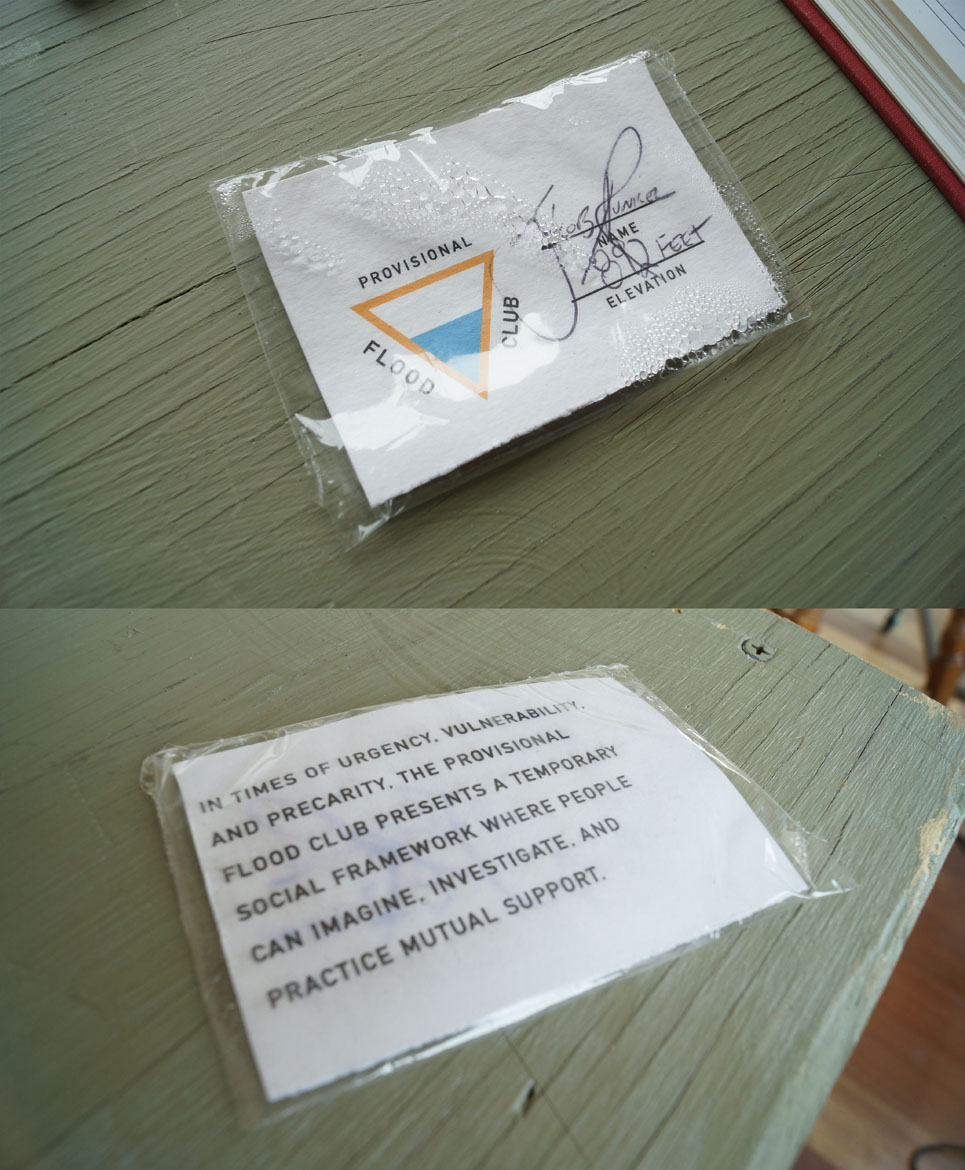 PROVISIONAL
FLOOD
CLUB
NAME
FEET
ELEVATION
IN TIMES OF URGENCY, VULNERABILITY,
AND PRECARITY, THE PROVISIONAL
FLOOD CLUB PRESENTS A TEMPORARY
SOCIAL FRAMEWORK WHERE PEOPLE
CAN IMAGINE, INVESTIGATE, AND
PRACTICE MUTUAL SUPPORT.